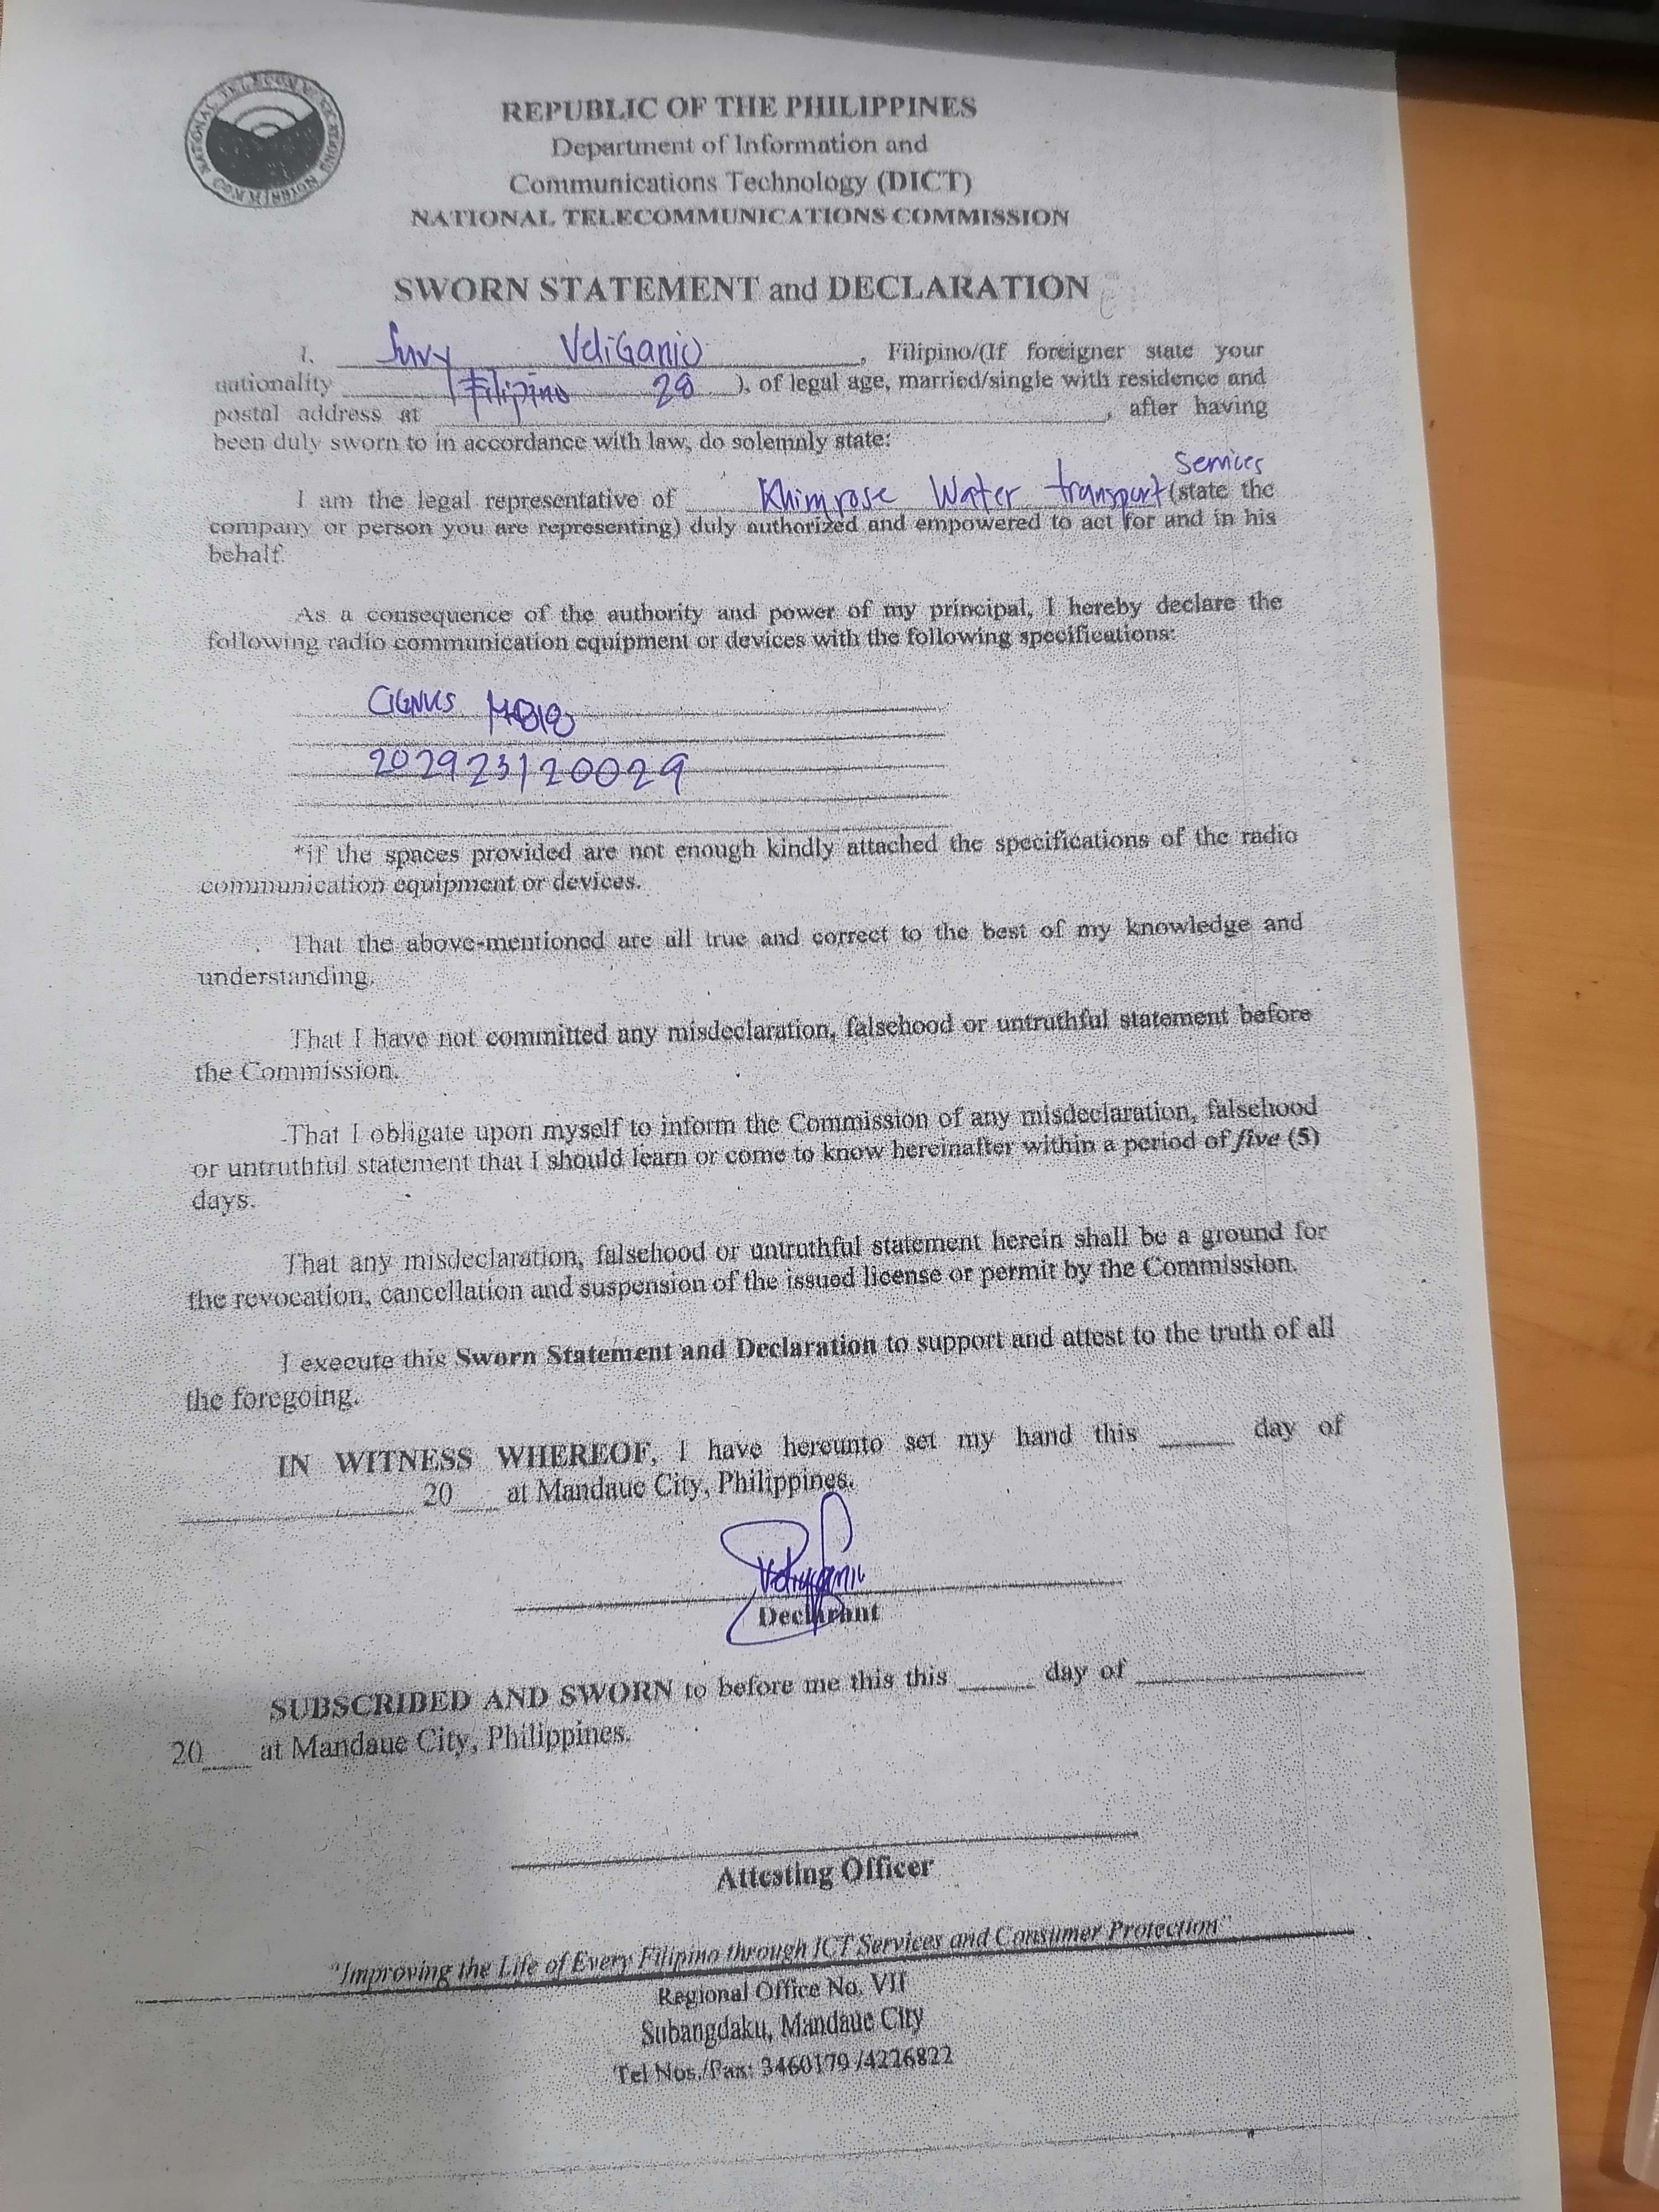 NATIONAL TELECOMMUNICATIONS COMMISSION
REPUBLIC OF THE PHILIPPINES
Department of Information and
Communications Technology (DICT)
NATIONAL TELECOMMUNICATIONS COMMISSION
SWORN STATEMENT and DECLARATION
I, VeliGanio, Filipino/(If foreigner state your
nationality Filipino 28 ), of legal age, married/single with residence and
postal address at ____, after having
been duly sworn to in accordance with law, do solemnly state:
Services
I am the legal representative of Khimrose Water transport (state the
company or person you are representing) duly authorized and empowered to act for and in his
behalf.
As a consequence of the authority and power of my principal, I hereby declare the
following radio communication equipment or devices with the following specifications:
CIGNUS
202923120029
*if the spaces provided are not enough kindly attached the specifications of the radio
communication equipment or devices.
That the above-mentioned are all true and correct to the best of my knowledge and
understanding.
That I have not committed any misdeclaration, falsehood or untruthful statement before
the Commission.
-That I obligate upon myself to inform the Commission of any misdeclaration, falsehood
or untruthful statement that I should learn or come to know hereinafter within a period of five (5)
days.
That any misdeclaration, falsehood or untruthful statement herein shall be a ground for
the revocation, cancellation and suspension of the issued license or permit by the Commission.
I execute this Sworn Statement and Declaration to support and attest to the truth of all
the foregoing.
IN WITNESS WHEREOF, I have hereunto set my hand this ____ day of
____ 20__ at Mandaue City, Philippines.
Declarant
SUBSCRIDED AND SWORN to before me this this ____ day of ____
20__ at Mandaue City, Philippines.
Attesting Officer
"Improving the Life of Every Filipino through ICT Services and Consumer Protection"
Regional Office No. VII
Subangdaku, Mandaue City
Tel Nos./Fax: 3460179 /4226822